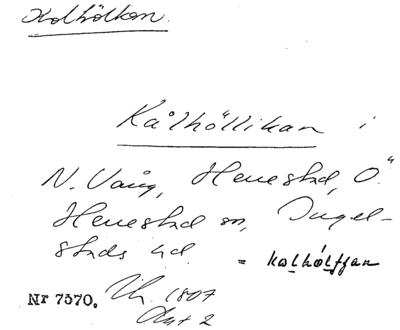 Kolhölkan.
Kålhöllikan i
N. Vång, Henestad, Ö.
Henestad sn, Ingel-
stads hd. = kolhólffan
Nr 7370. 1807
Akt 2